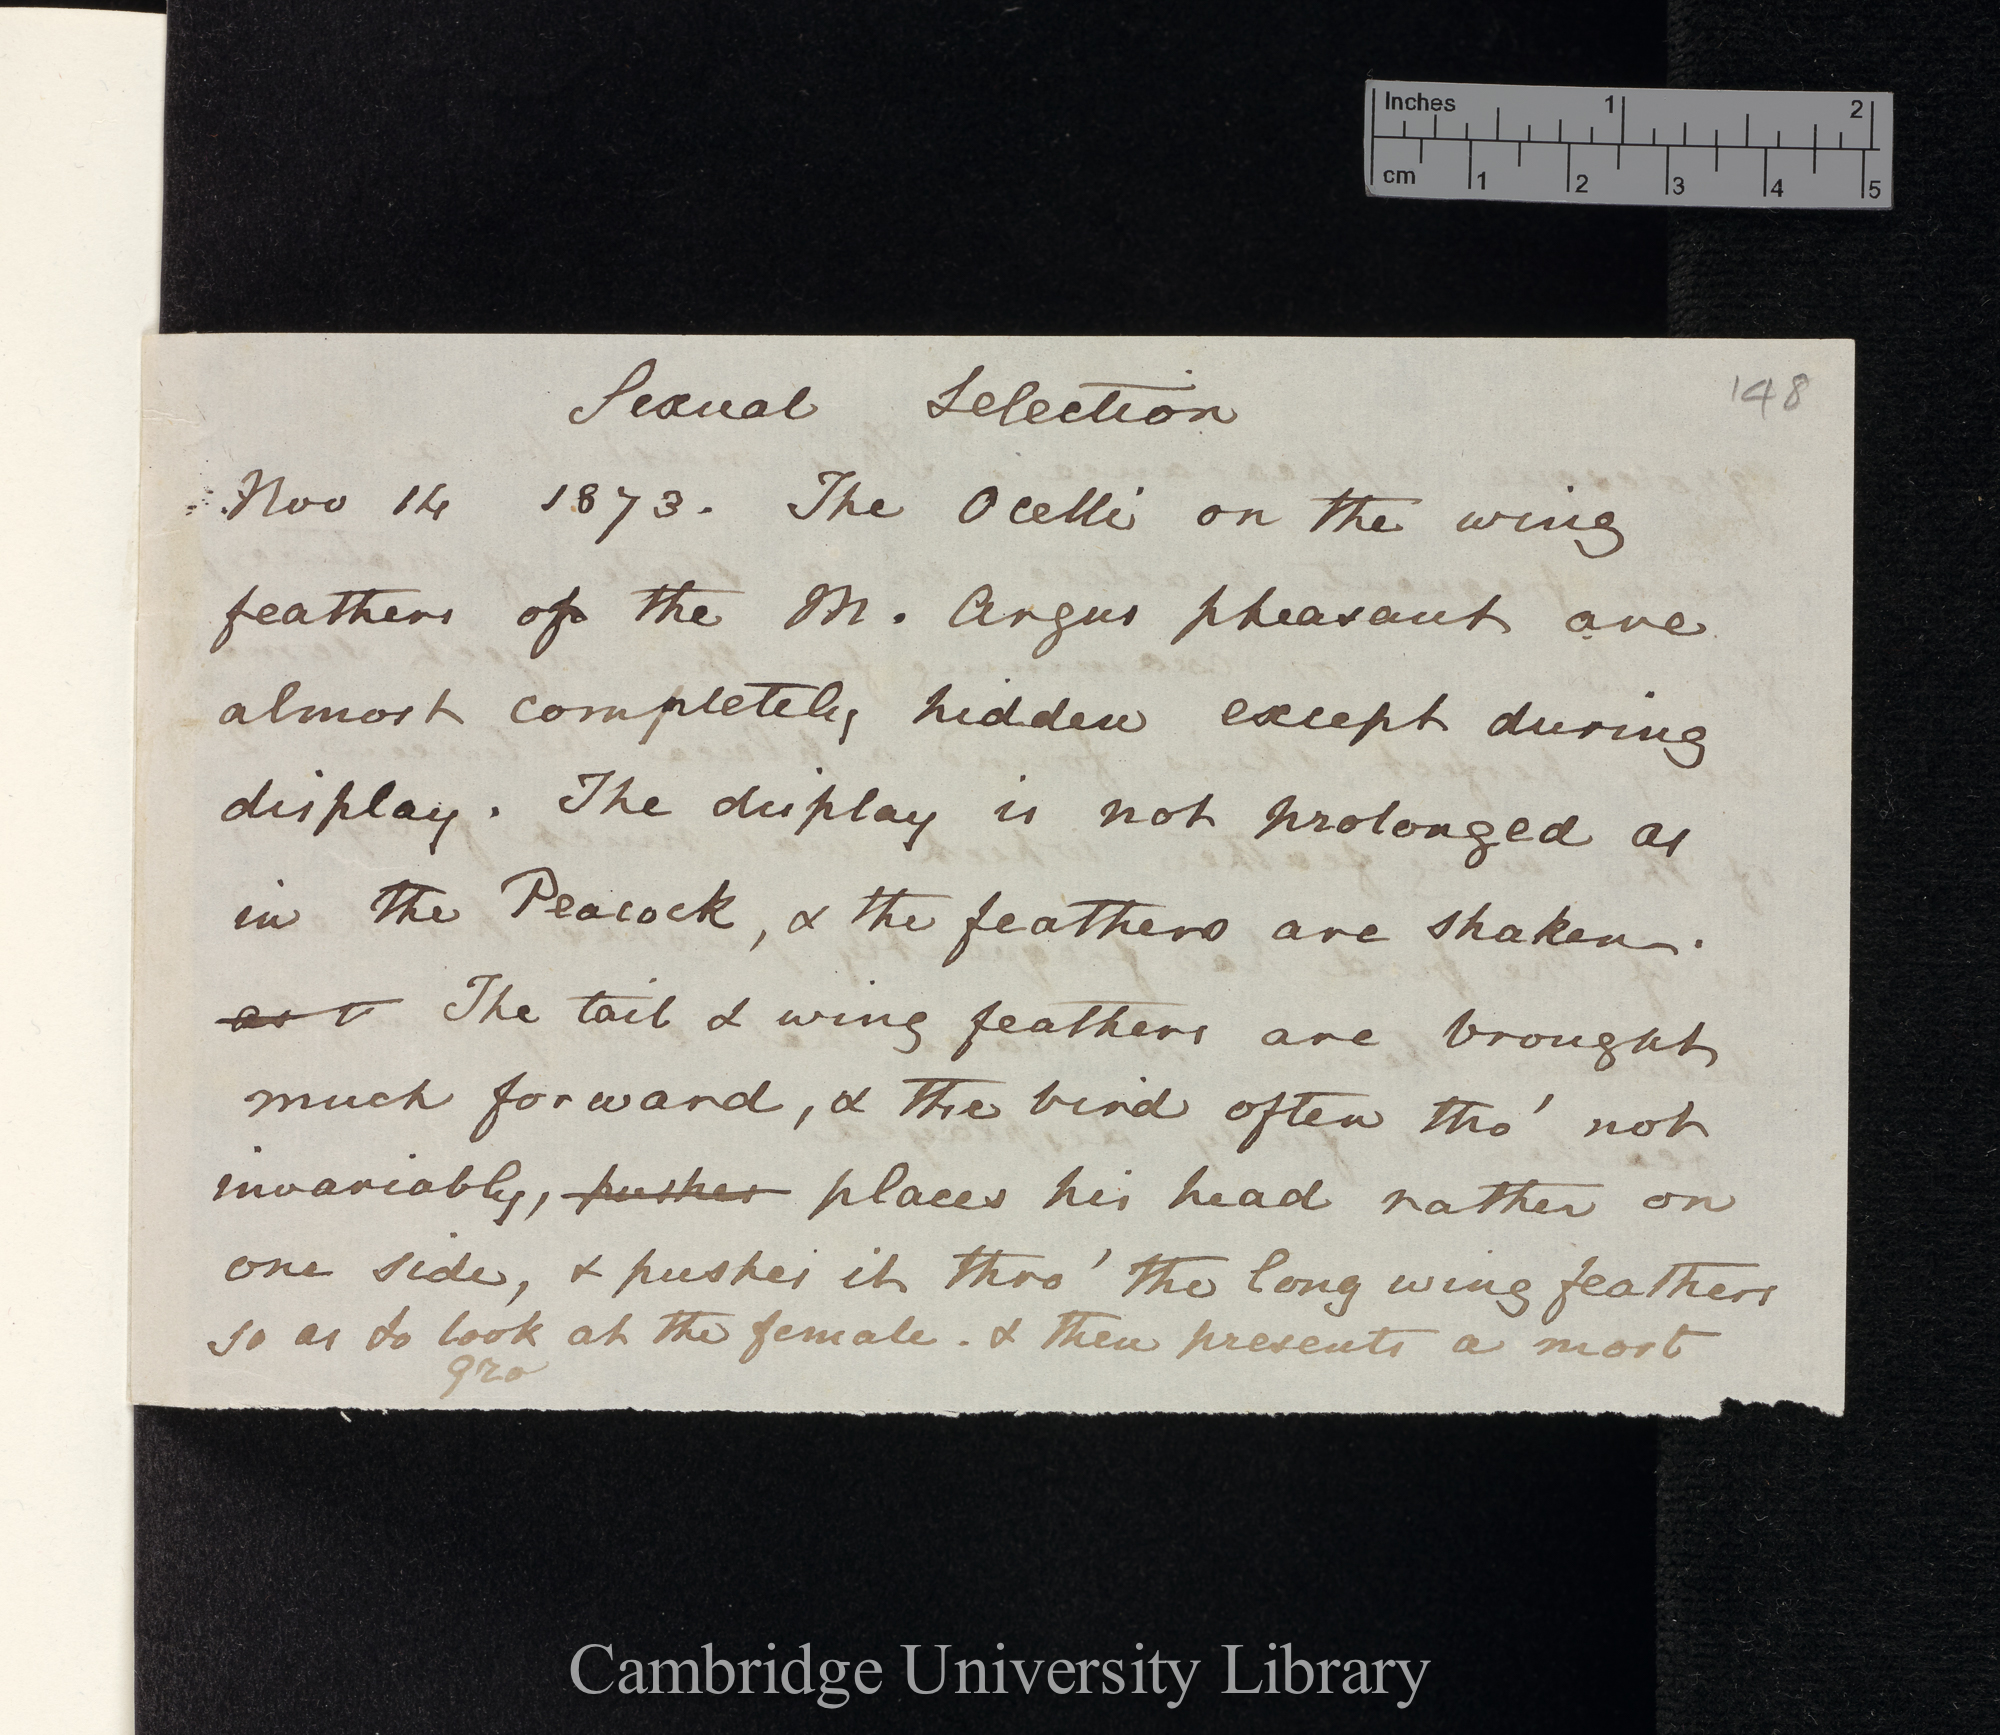 Inches 1 2
cm 1 2 3 4 5
148
Sexual Selection
Nov 14 1873. The Ocelli on the wing
feathers of the M. Argus pheasant are
almost completely hidden except during
display. The display is not prolonged as
in the Peacock, & the feathers are shaken.
as t The tail & wing feathers are brought
much forward, & the bird often tho' not
invariably, pushes places his head rather on
one side, & pushes it thro' the long wing feathers
so as to look at the female. & then presents a most
gro
Cambridge University Library